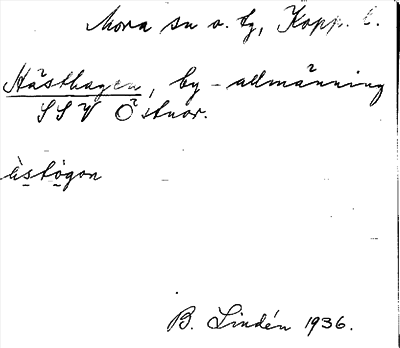 Mora sn o. tg, Kopp. l.
Hästhagen, by-allmänning
SSV Östnor.
èstògon
B. Lindén 1936.